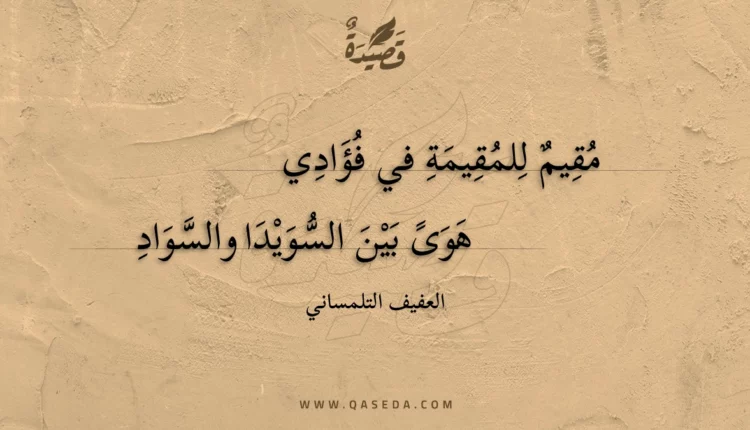 قَصِيدَةٌ
مُقِيمٌ لِلمُقِيمَةِ في فُؤَادِي
هَوَىً بَيْنَ السُّوَيْدَا والسَّوَادِ
العفيف التلمساني
WWW.QASEDA.COM